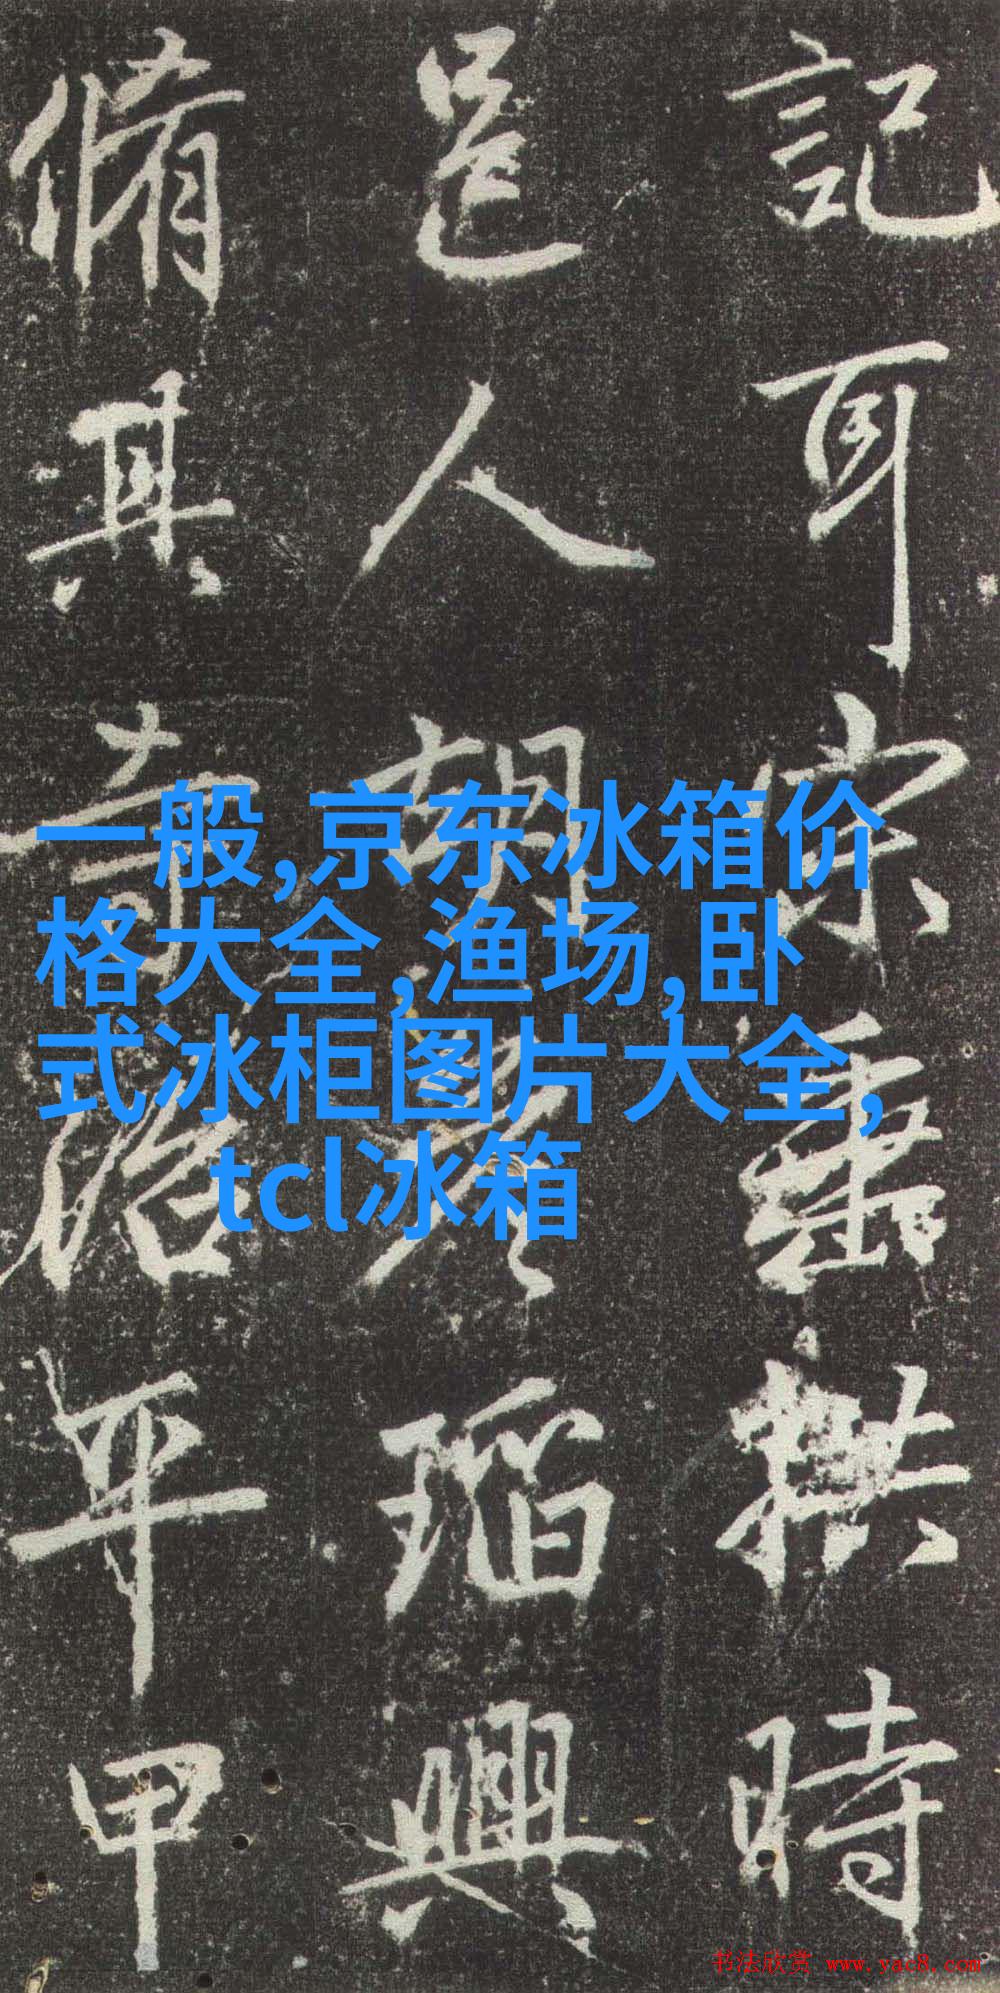 記耳宗垂拱時
邑人胡瑫興
脩其治平甲
一般,京东冰箱价
格大全,渔场,卧
式冰柜图片大全,
tcl冰箱
书法欣赏 www.yac8.com